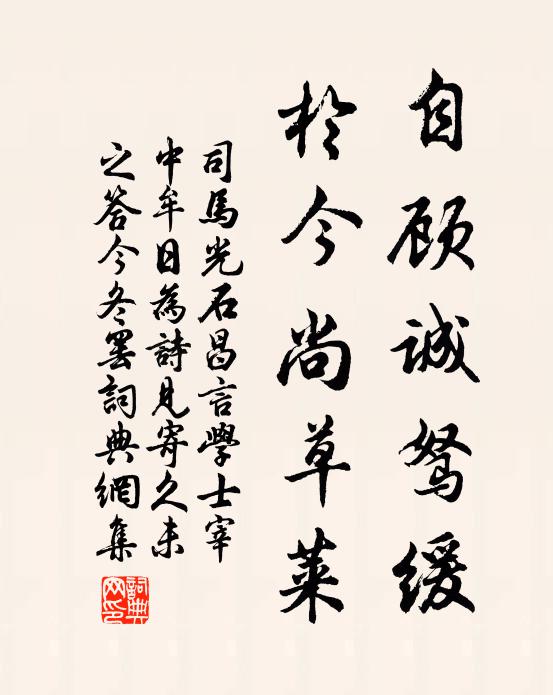 自顾诚驽缓
於今尚草莱
司馬光石昌言學士宰
中牟日為詩見寄久未
之答今冬罢詞典網集
詞典
网印